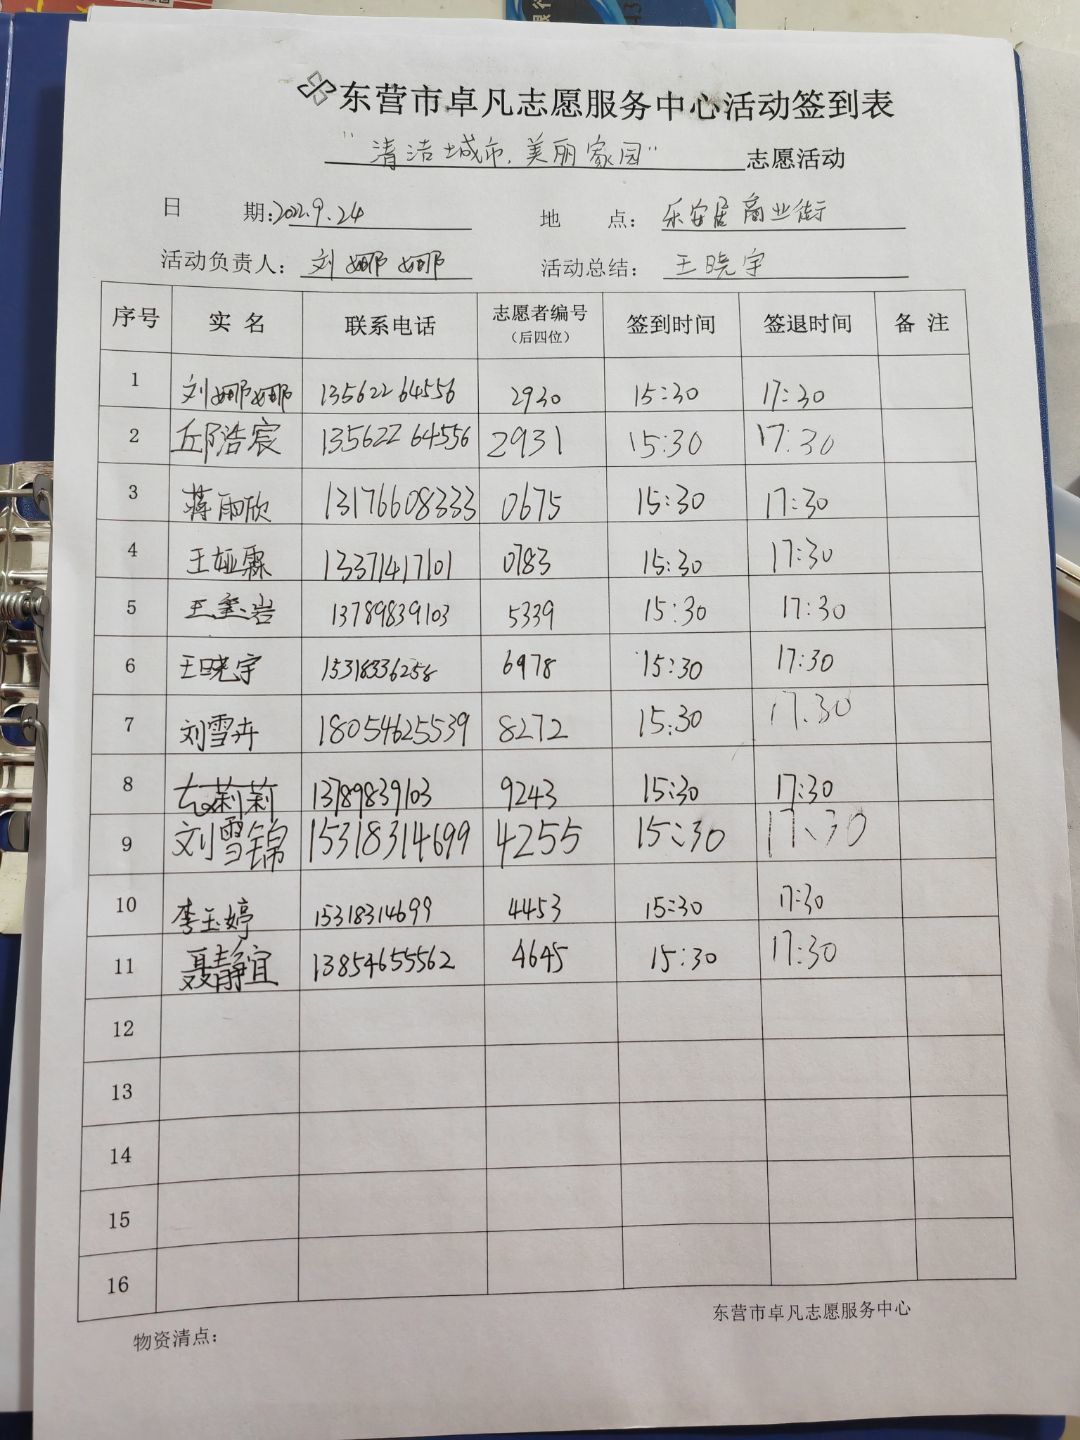 东营市卓凡志愿服务中心活动签到表
"清洁城市,美丽家园" 志愿活动
日 期:2022.9.24 地 点:乐安居商业街
活动负责人:刘娜娜 活动总结:王晓宇
序号 实名 联系电话 志愿者编号(后四位) 签到时间 签退时间 备注
1 刘娜娜 13562264556 2930 15:30 17:30
2 邱浩宸 13562264556 2931 15:30 17:30
3 蒋雨欣 13176608333 0675 15:30 17:30
4 王娅霖 13371417101 0783 15:30 17:30
5 王 岩 13789839103 5339 15:30 17:30
6 王晓宇 15318336258 6978 15:30 17:30
7 刘雪卉 18054625539 8272 15:30 17.30
8 莉莉 13789839103 9243 15:30 17:30
9 刘雪锦 15318314699 4255 15:30 17:30
10 李玉婷 15318314699 4453 15:30 17:30
11 聂静宜 13854655562 4645 15:30 17:30
12
13
14
15
16
东营市卓凡志愿服务中心
物资清点: